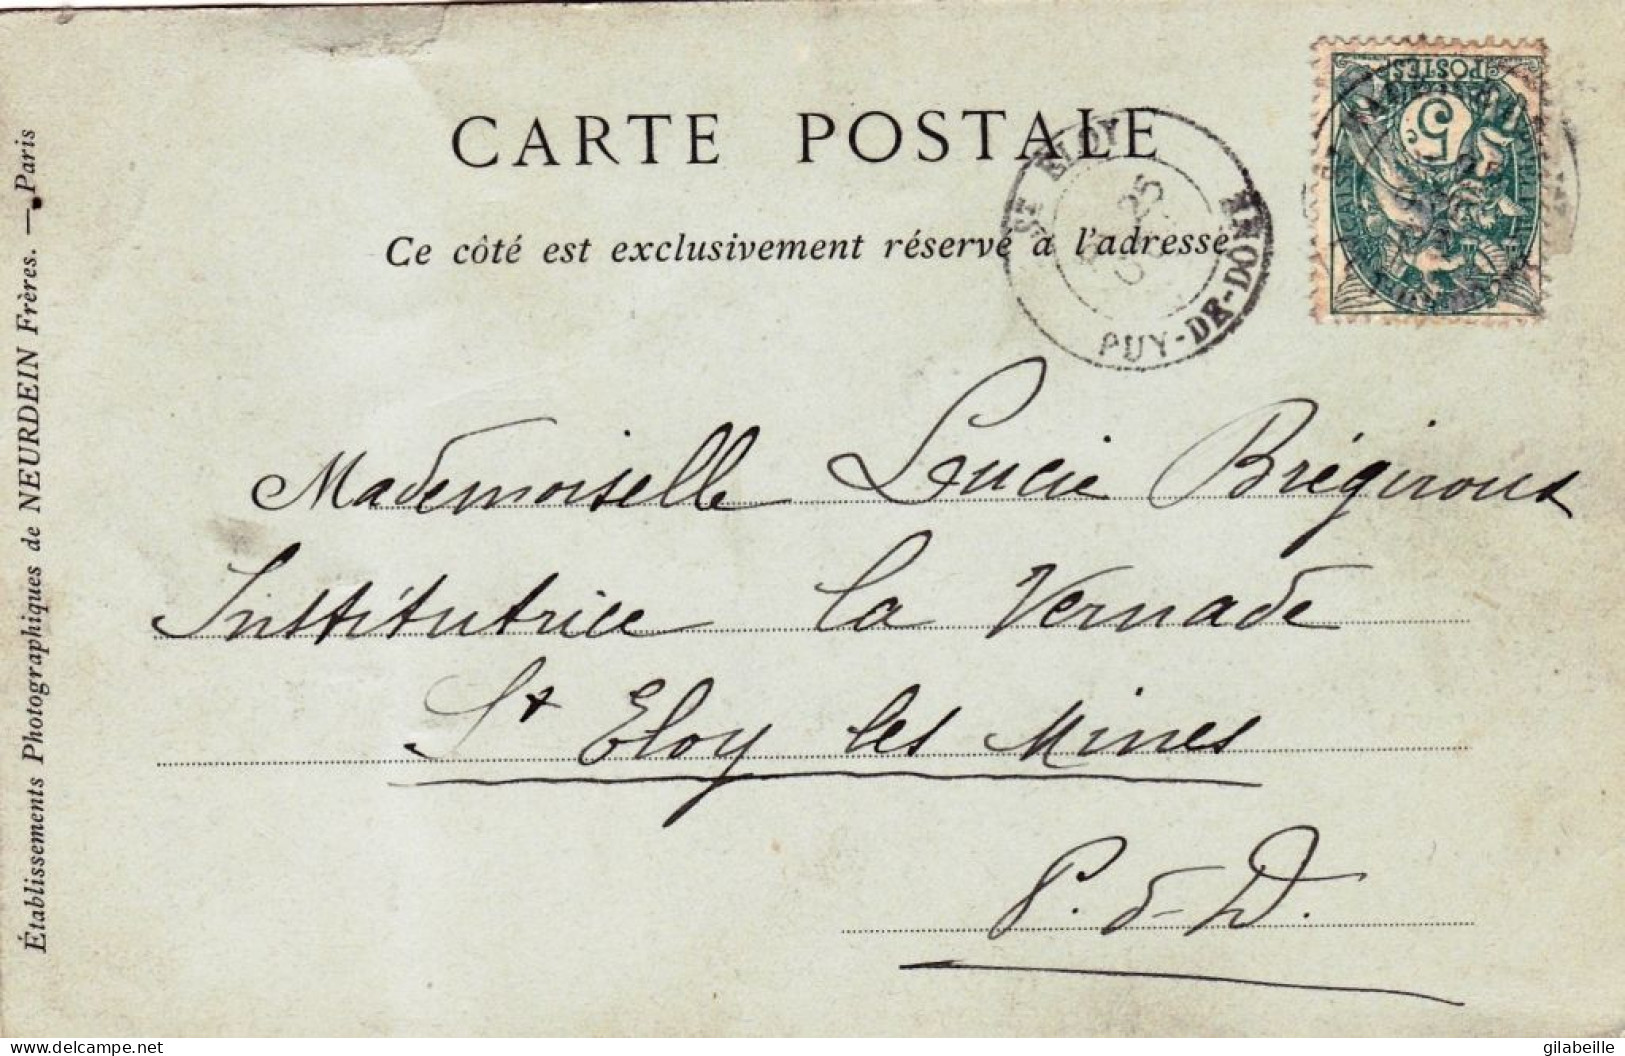 CARTE POSTALE
Ce côté est exclusivement réservé a l'adresse
POSTES
5
ST ELOY
25
PUY-DE-DOME
Mademoiselle Lucie Brégiroux
Institutrice la Vernade
St Eloy les Mines
P. d. D.
Établissements Photographiques de NEURDEIN Frères. — Paris
delcampe.net
gilabeille